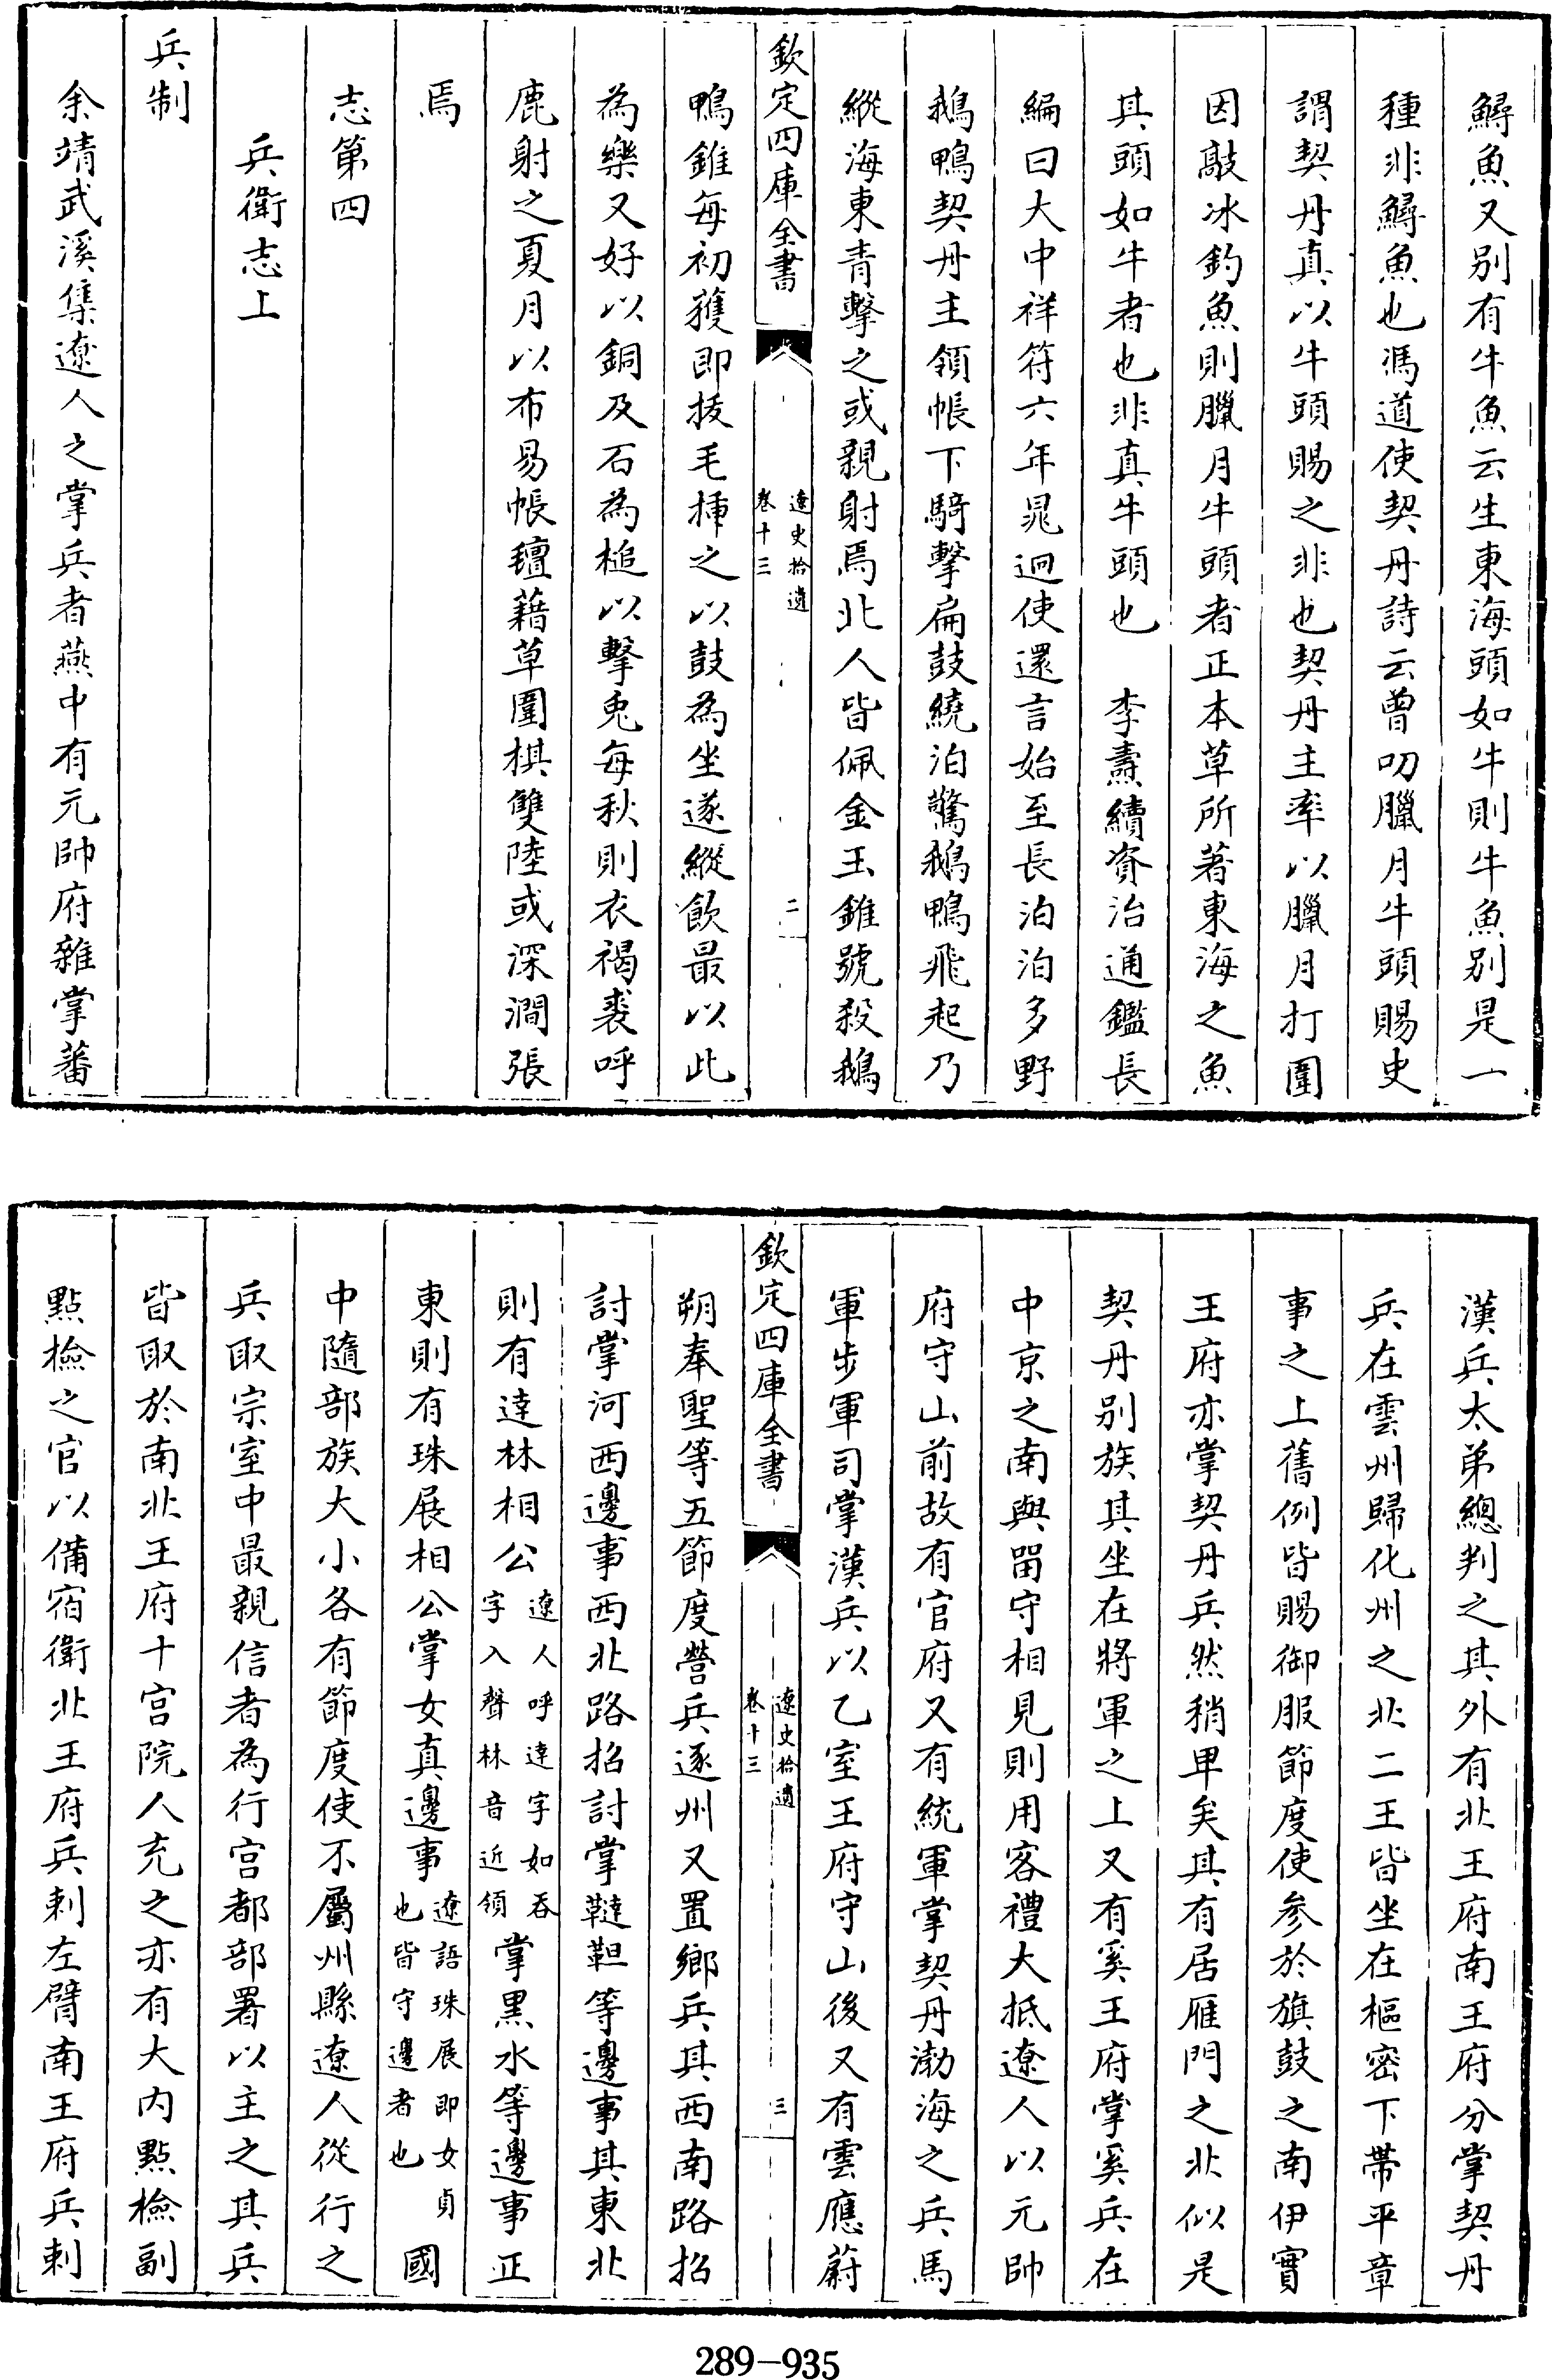 鱘魚又别有牛魚云生東海頭如牛則牛魚别是一
種非鱘魚也馮道使契丹詩云曾叨臘月牛頭賜史
謂契丹真以牛頭賜之非也契丹主率以臘月打圍
因敲冰釣魚則臘月牛頭者正本草所著東海之魚
其頭如牛者也非真牛頭也　李燾續資治通鑑長
編曰大中祥符六年晁迥使還言始至長泊泊多野
鵝鴨契丹主領帳下騎擊扁鼓繞泊驚鵝鴨飛起乃
縱海東青擊之或親射焉北人皆佩金玉錐號殺鵝
欽定四庫全書
遼史拾遺
卷十三
二
鴨錐每初獲即拔毛揷之以鼓為坐遂縱飲最以此
為樂又好以銅及石為槌以擊兎每秋則衣褐裘呼
鹿射之夏月以布易帳氊藉草圍棋雙陸或深澗張
焉
志第四
兵衛志上
兵制
余靖武溪集遼人之掌兵者燕中有元帥府雜掌蕃
漢兵太弟總判之其外有北王府南王府分掌契丹
兵在雲州歸化州之北二王皆坐在樞密下帶平章
事之上舊例皆賜御服節度使参於旗鼓之南伊實
王府亦掌契丹兵然稍甲矣其有居雁門之北似是
契丹别族其坐在將軍之上又有奚王府掌奚兵在
中京之南與畱守相見則用客禮大抵遼人以元帥
府守山前故有官府又有統軍掌契丹渤海之兵馬
軍步軍司掌漢兵以乙室王府守山後又有雲應蔚
欽定四庫全書
遼史拾遺
卷十三
三
朔奉聖等五節度營兵逐州又置鄉兵其西南路招
討掌河西邊事西北路招討掌韃靼等邊事其東北
則有逹林相公遼人呼逹字如吞字入聲林音近領掌黒水等邊事正
東則有珠展相公掌女真邊事遼語珠展即女貞也皆守邊者也國
中隨部族大小各有節度使不屬州縣遼人從行之
兵取宗室中最親信者為行宫都部署以主之其兵
皆取於南北王府十宫院人充之亦有大内點檢副
點檢之官以備宿衛北王府兵剌左臂南王府兵剌
289-935